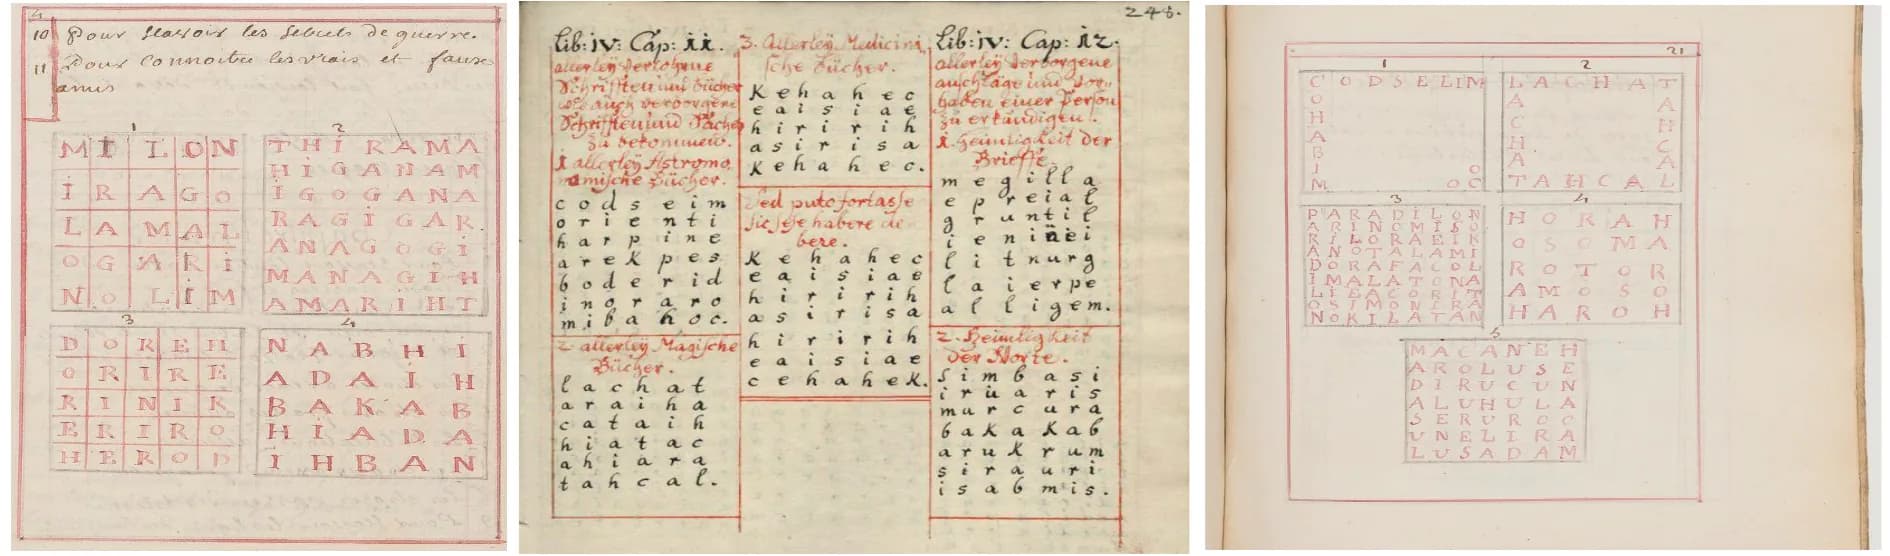 4
10 Pour scavoir les secrets de guerre.
11 Pour connoitre les vrais et faux
amis
1
M I L O N
I R A G O
L A M A L
O G A R I
N O L I M
2
T H I R A M A
H I G A N A M
I G O G A N A
R A G I G A R
A N A G O G I
M A N A G I H
A M A R I H T
3
D O R E H
O R I R E
R I N I R
E R I R O
H E R O D
4
N A B H I
A D A I H
B A K A B
H I A D A
I H B A N
248.
Lib: IV: Cap: ii.
allerley verlohrne
Schrifften und Bücher
wie auch verborgene
Schrifften und Sachen
zu bekommen.
1 allerley Astrono
mische Bücher.
c o d s e i m
o r i e n t i
h a r p i n e
a r e k p e s
b o d e r i d
i n o r a r o
m i b a h o c.
2 allerley Magische
Bücher.
l a c h a t
a r a i h a
c a t a i h
h i a t a c
a h i a r a
t a h c a l.
3. Allerley Medicini
sche Bücher.
K e h a h e c
e a i s i a e
h i r i r i h
a s i r i s a
K e h a h e c.
Sed puto fortasse
sic sese habere de
bere.
K e h a h e c
e a i s i a e
h i r i r i h
a s i r i s a
h i r i r i h
e a i s i a e
c e h a h e K.
Lib: IV: Cap: 12.
allerley verborgene
anschläge und vor
haben einer Person
zu erkündigen.
1. Heimligkeit der
Brieffe.
m e g i l l a
e p r e i a l
g r u n t i l
i e n i n e i
l i t n u r g
l a i e r p e
a l l i g e m.
2. Heimligkeit
der Worte.
S i m b a s i
i r u a r i s
m a r c a r a
b a K a K a b
a r u K r u m
s i r a u r i
i s a b m i s.
21
1
C O D S E L I M
O
H
A
B
I O
M O C
2
L A C H A T
A A
C H
H C
A A
T A H C A L
3
P A R A D I L O N
A R I N O M I S O
R I L O R A E I K
A N O T A L A M I
D O R A F A C O L
I M A L A T O N A
L I E A C O R I T
O S I M O N I R A
N O K I L A T A N
4
H O R A H
O S O M A
R O T O R
A M O S O
H A R O H
5
M A C A N E H
A R O L U S E
D I R U C U N
A L U H U L A
S E R U R O C
U N E L I R A
L U S A D A M